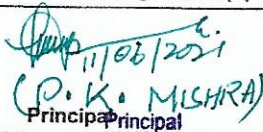 11/06/2021
(P. K. MISHRA)
Principal Principal